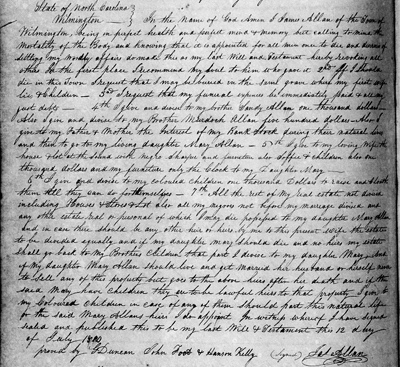 State of North Carolina
Wilmington In the Name of God Amen I James Allan of the Town of
Wilmington, being in perfect health and perfect mind & memory, but calling to mind the
Mortality of the Body and knowing that it is appointed for all men once to die and desirous of
settling my worldly affairs do make this as my last Will and Testament hereby revoking all
others In the first place I recommend my Soul to him who gave it 2nd If I should
die in this town I request that I may be buried in the same grave where my first wife
lie & Children 3rd I request that my funeral expences be immediately paid & all my
just debt 4th I give and devise to my brother Allan one thousand dollars
Also I give and devise to my Brother Murdoch Allan five hundred dollars Also I
give to my Father & Mother the Interest of my Bank Stock during their natural lives
and then to go to my living daughter Mary Allan 5th I give to my loving Wife the
house & lot at the Sound with Negro Sharper and also Soffie & children also one
thousand dollars and my furniture only the Clock to my Daughter Mary
6th I give and devise to my coloured Children one thousand Dollars to raise and
them till they can do for themselves 7th All the rest of my real estate not devised
including Houses & Stores & Lot also all my negroes not before my marriage devised and
any other estate real or personal of which I may die possessed to my daughter Mary Allan
and in case there should be any other heir or heirs by me to this present wife the estate
to be divided equally and if my daughter Mary should die and no heir my estate
shall go back to my Brothers Children that part I devise to my daughter Mary And
if My daughter Mary Allan should live and get Married her husband or herself never
to sell any of the property but goes to the above heirs after her death and if the
said Mary have Children they are the lawful heirs to that property I give
my Coloured Children in case any of them should part this natural life
for the said Mary Allans heirs I do appoint In witness whereof I have signed
sealed and published this to be my last Will & Testament this 12 day
of July
proved by Duncan John Foot & Hanson Kelly (Signed) Jas Allan